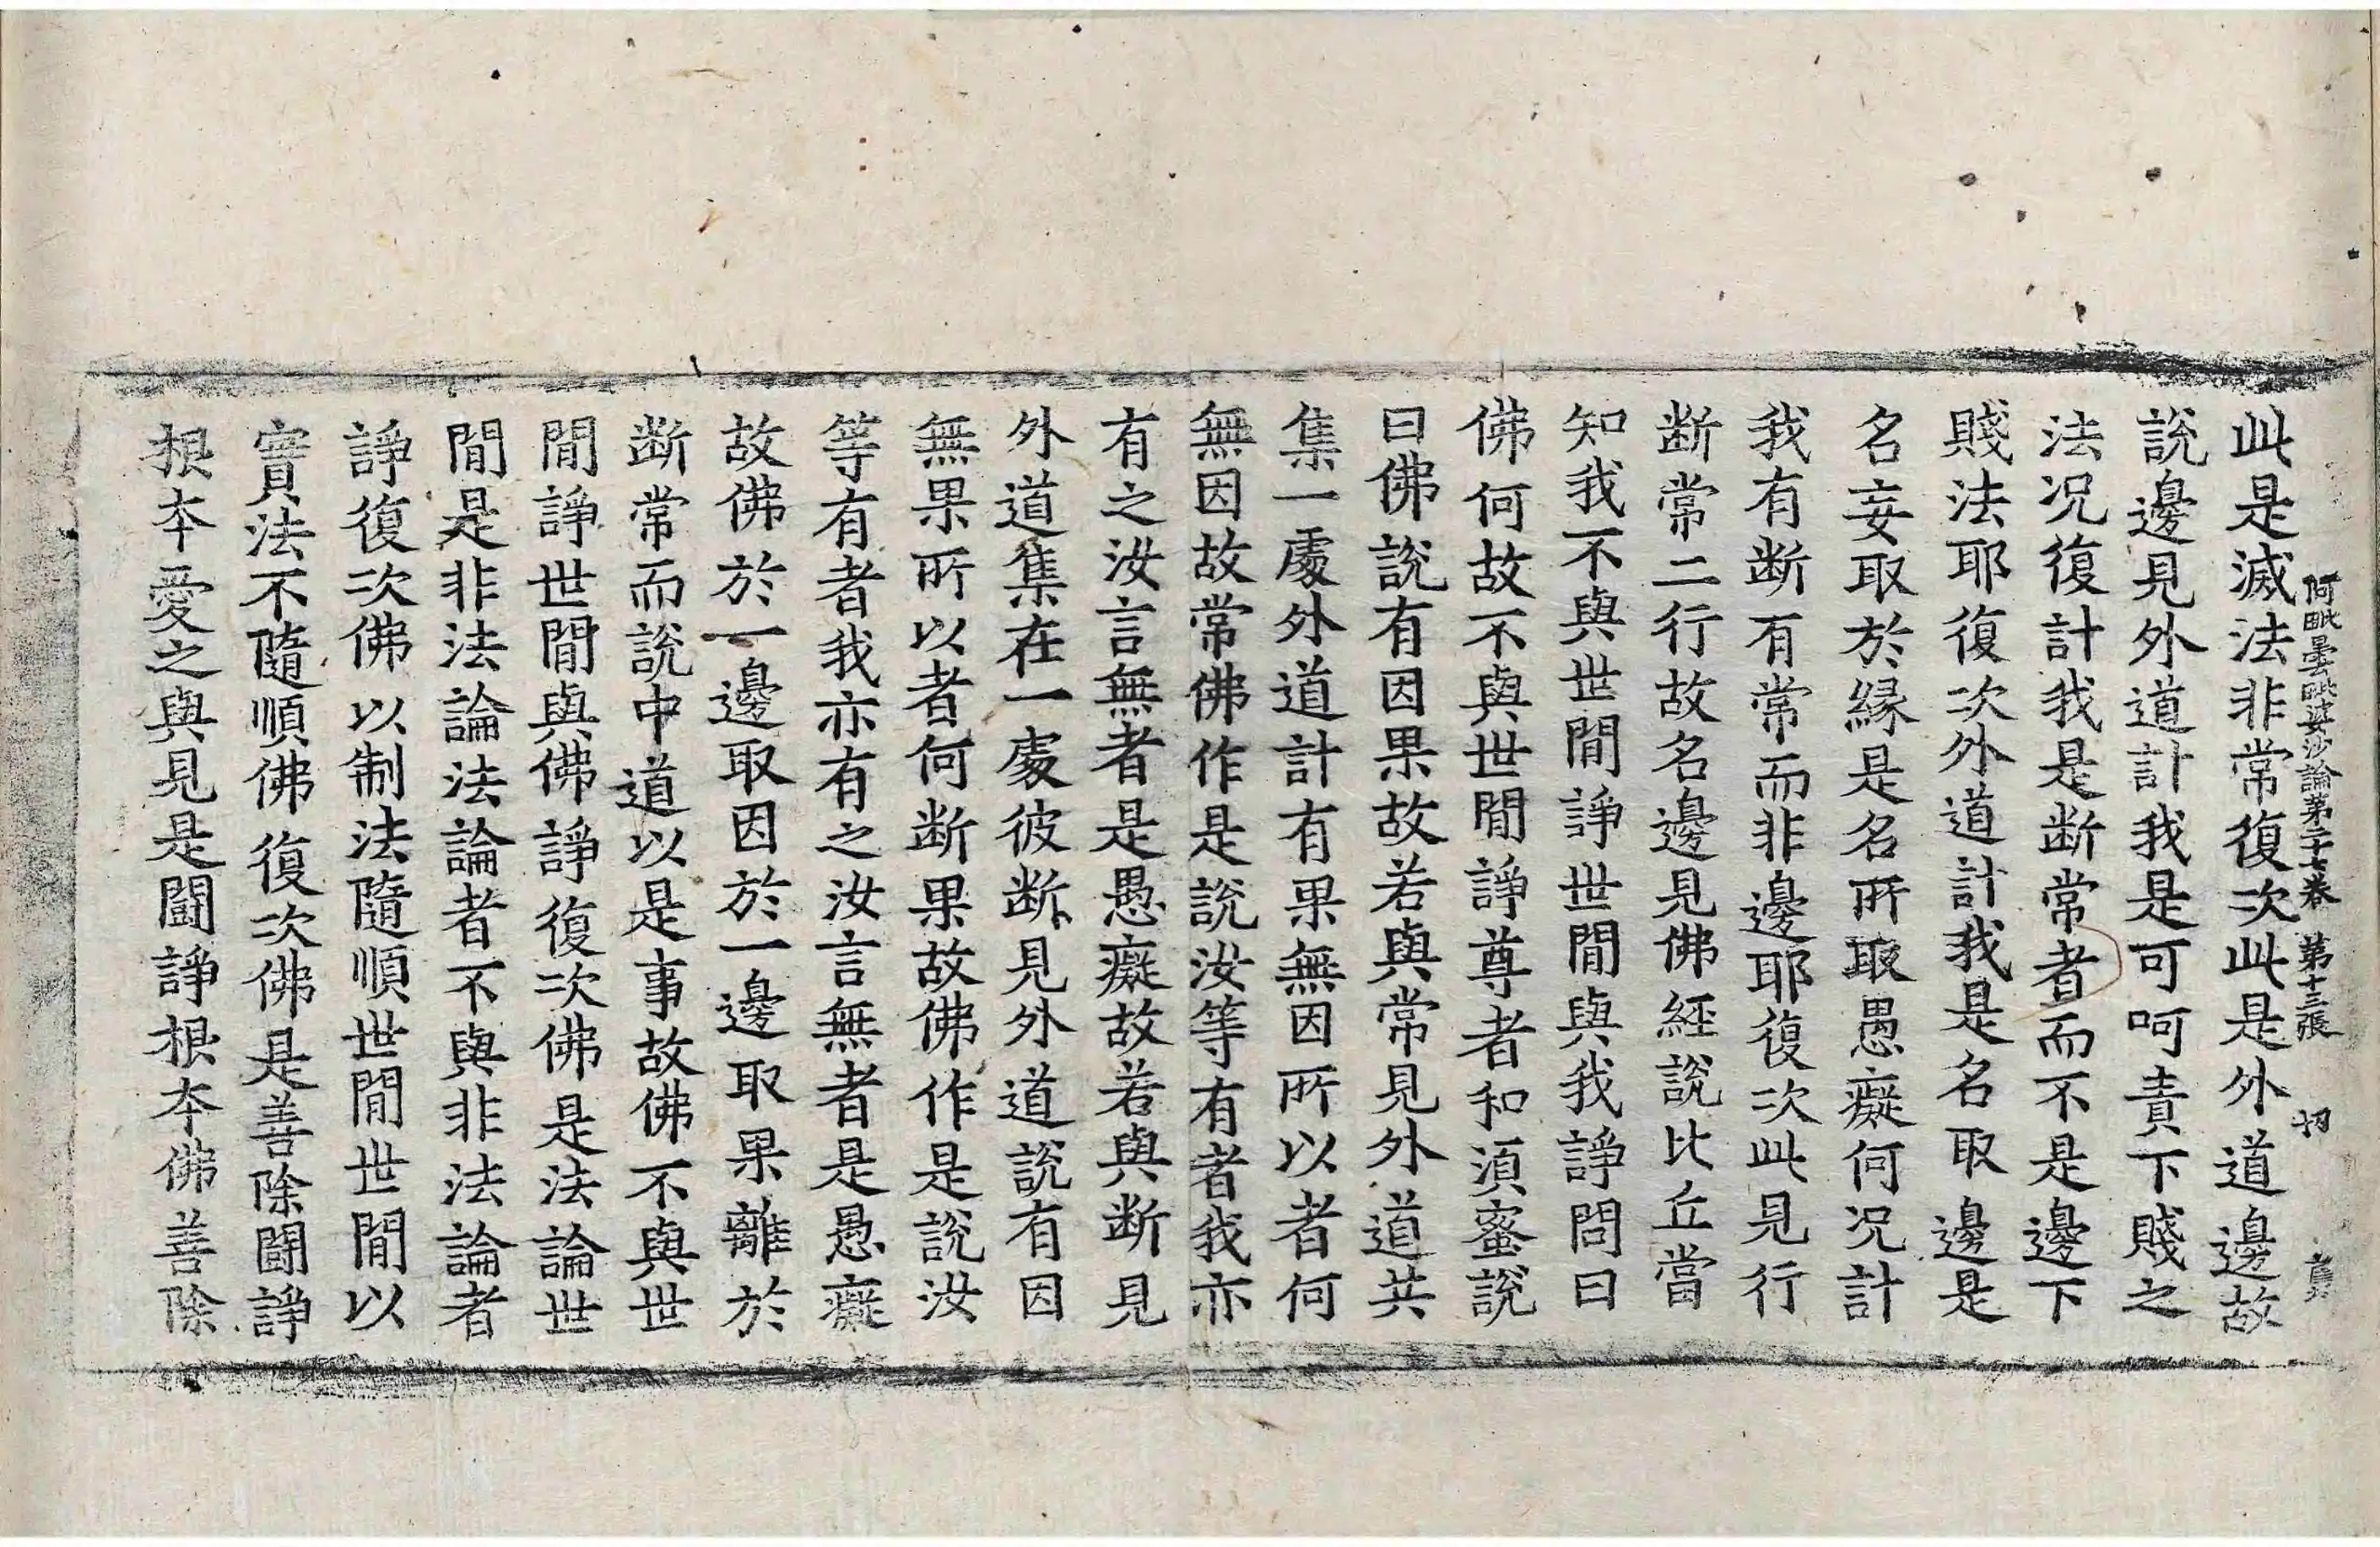 阿毗曇毗婆沙論第二十七卷 第十三張 切
此是滅法非常復次此是外道邊故
說邊見外道計我是可呵責下賤之
法况復計我是断常者而不是邊下
賤法耶復次外道計我是名取邊是
名妄取於緣是名所取愚癡何况計
我有断有常而非邊耶復次此見行
断常二行故名邊見佛經說比丘當
知我不與世閒諍世間與我諍問曰
佛何故不與世間諍尊者和湏蜜說
曰佛說有因果故若與常見外道共
集一處外道計有果無因所以者何
無因故常佛作是說汝等有者我亦
有之汝言無者是愚癡故若與断見
外道集在一處彼断見外道說有因
無果所以者何断果故佛作是說汝
等有者我亦有之汝言無者是愚癡
故佛於一邊取因於一邊取果離於
断常而說中道以是事故佛不與世
間諍世間與佛諍復次佛是法論世
間是非法論法論者不與非法論者
諍復次佛以制法隨順世間世間以
實法不隨順佛復次佛是善除闘諍
根本愛之與見是闘諍根本佛善除